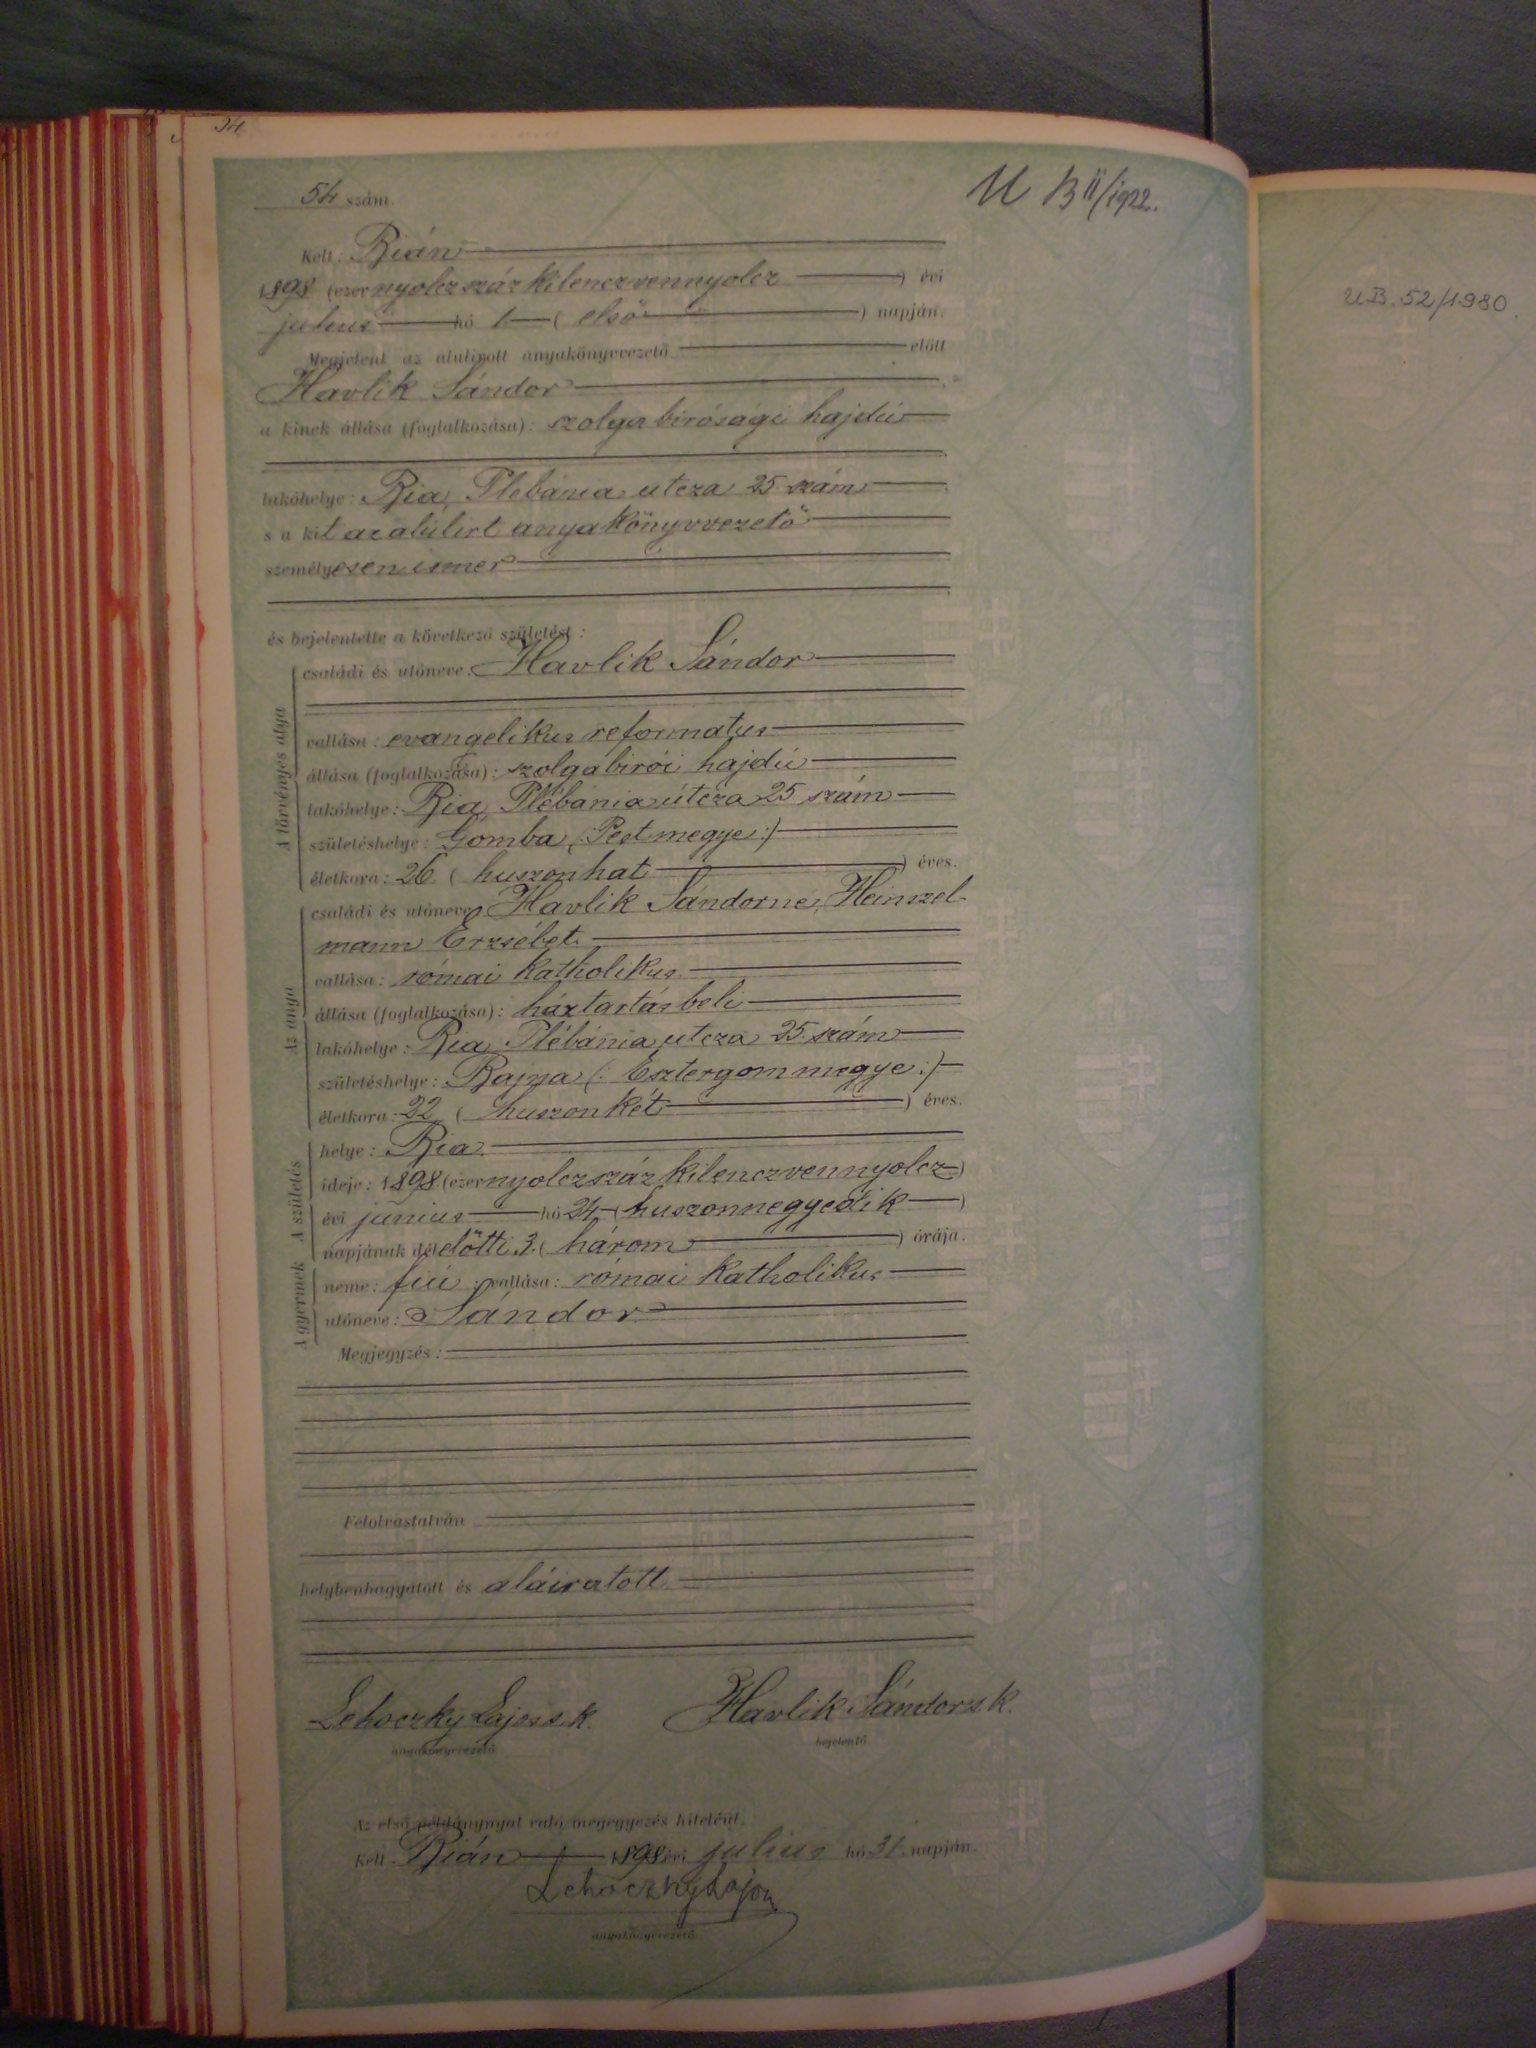 54 szám.
U B II/1922.
Kelt: Bián
1898 (ezernyolczszázkilenczvennyolcz) évi
julius hó 1. (első) napján.
Megjelent az alulirott anyakönyvvezető előtt
Havlik Sándor
a kinek állása (foglalkozása): szolgabirósági hajdú
lakóhelye: Bia, Plébánia utcza 25 szám
s a kit az alulirt anyakönyvvezető
személyesen ismer
és bejelentette a következő születést:
A törvényes atya
családi és utóneve: Havlik Sándor
vallása: evangelikus reformatus
állása (foglalkozása): szolgabirói hajdú
lakóhelye: Bia, Plébánia útcza 25 szám
születéshelye: Gomba (: Pest megye :)
életkora: 26 (huszonhat) éves.
Az anya
családi és utóneve: Havlik Sándorné, Heinszel-
mann Erzsébet
vallása: római katholikus
állása (foglalkozása): háztartásbeli
lakóhelye: Bia, Plébánia utcza 25. szám
születéshelye: Bajna (: Esztergom megye :)
életkora: 22 (huszonkét) éves.
A születés
helye: Bia.
ideje: 1898 (ezernyolczszázkilenczvennyolcz)
évi junius hó 24 (huszonnegyedik)
napjának délelőtti 3. (három) órája.
A gyermek
neme: fiú; vallása: római katholikus
utóneve: Sándor
Megjegyzés:
Felolvastatván
helybenhagyatott és aláiratott
Lehoczky Lajos s.k. Havlik Sándor s.k.
anyakönyvvezető bejelentő
Az első példánynyal való megegyezés hiteléül.
Kelt Bián 1898 évi julius hó 31. napján.
Lehoczky Lajos
anyakönyvvezető
UB. 52/1980.